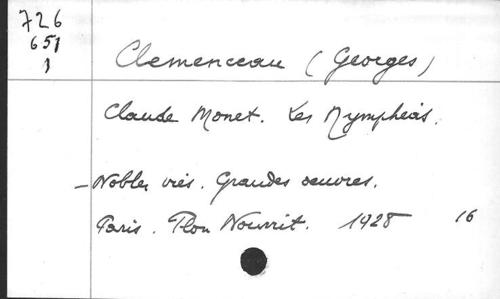 726
651
1
Clemenceau (Georges)
Claude Monet. Les Nymphéas.
- Nobles vies. Grandes oeuvres.
Paris. Plon Nourrit. 1928 16